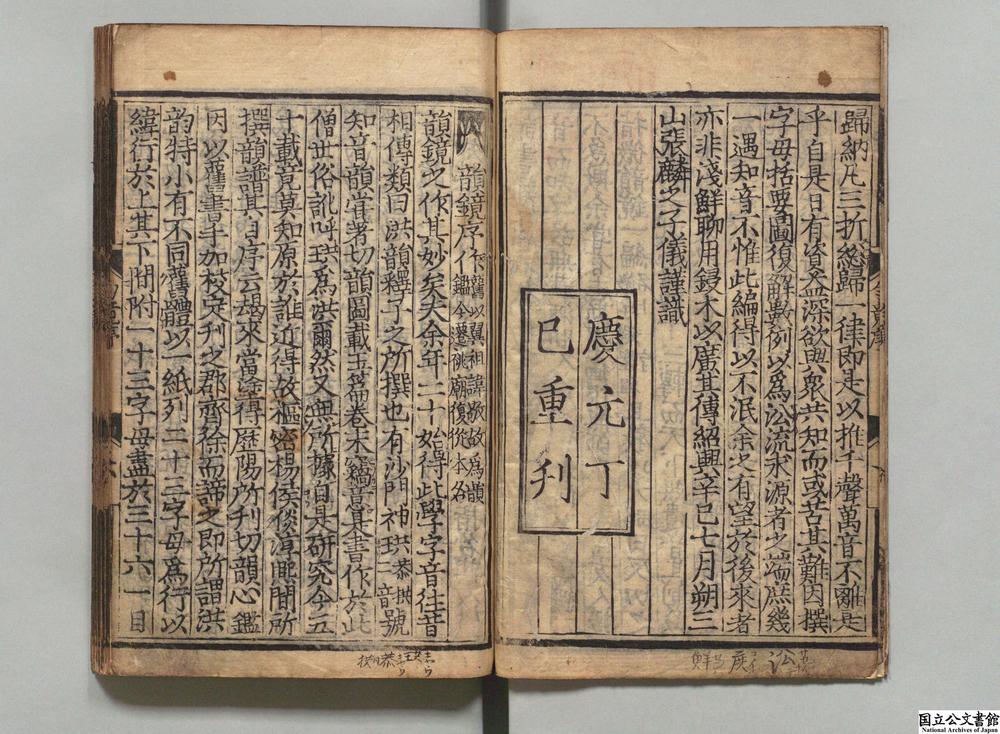 歸納凡三折總歸一律即是以推千聲萬音不離是
乎自是日有資益深欲與衆共知而或苦其難因撰
字母括要圖復解數例以爲㳂流求源者之端庶幾
一遇知音不惟此編得以不泯余之有望於後來者
亦非淺鮮聊用鋟木以廣其傳紹興辛巳七月朔三
山張麟之子儀謹識
慶元丁
巳重刋
韻鏡序作舊以翼祖諱敬故爲韻
鑑今遷祧廟復從本名
韻鏡之作其妙矣夫余年二十始得此學字音往昔
相傳類曰洪韻釋子之所撰也有沙門神珙恭拱二音號
知音韻嘗著切韻圖載玉篇卷末竊意是書作於此
僧世俗訛呼珙爲洪爾然又無所據自是研究今五
十載竟莫知原於誰近得故樞密楊侯倓淳熙間所
撰韻譜其自序云朅來當塗得歷陽所刋切韻心鑑
因以舊書手加校定刋之郡齋徐而諦之即所謂洪
韵特小有不同舊體以一紙列二十三字母爲行以
緯行於上其下間附一十三字母盡於三十六一目
國立公文書館
National Archives of Japan